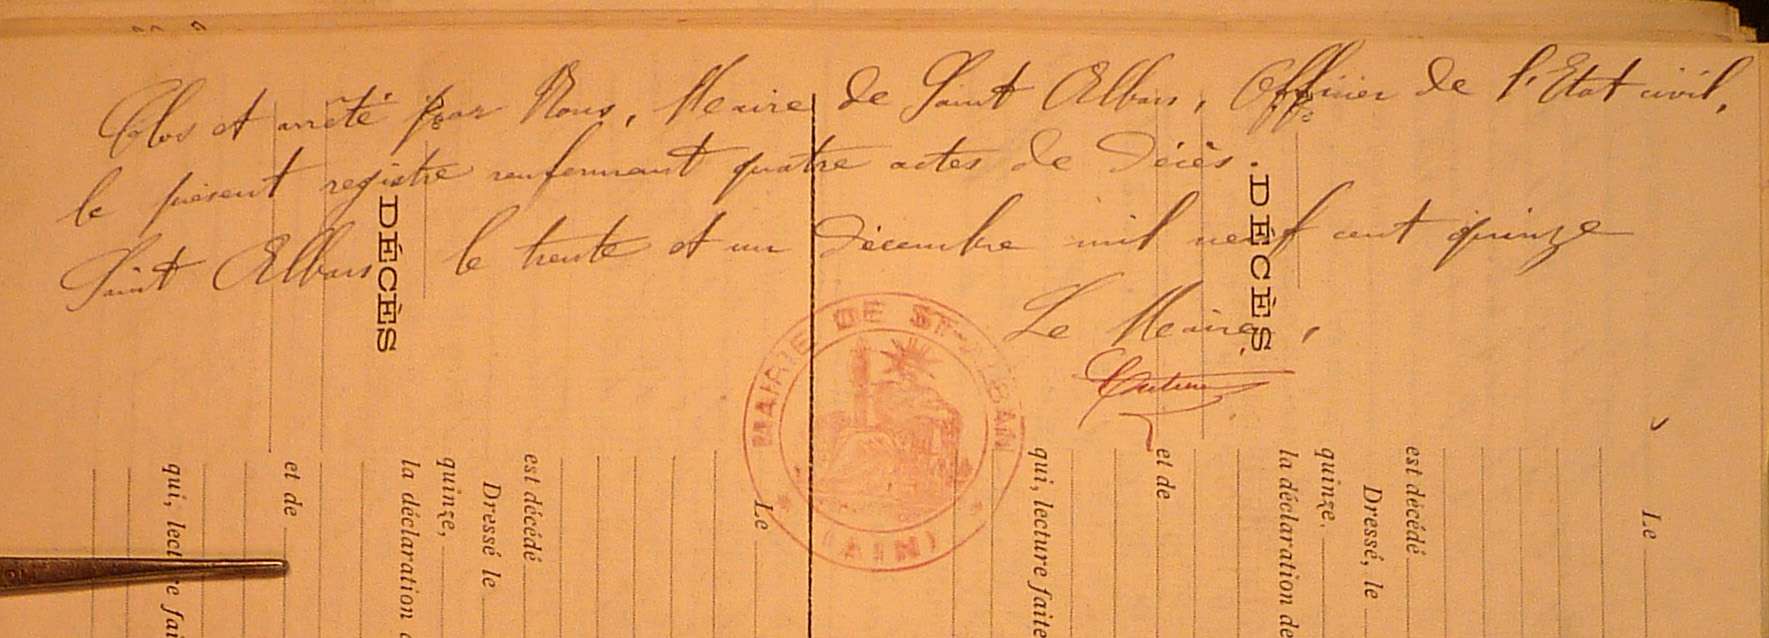 Clos et arrêté par Nous, Maire de Saint Alban, Officier de l'Etat civil,
le présent registre renfermant quatre actes de décès.
Saint Alban le trente et un Décembre mil neuf cent quinze
Le Maire,
MAIRIE DE ST-ALBAN
(AIN)
DÉCÈS
DÉCÈS.
Le
est décédé
Dressé, le
quinze.
la déclaration de
et de
qui, lecture faite
Le
est décédé
Dressé le
quinze,
la déclaration
et de
qui, lecture fai